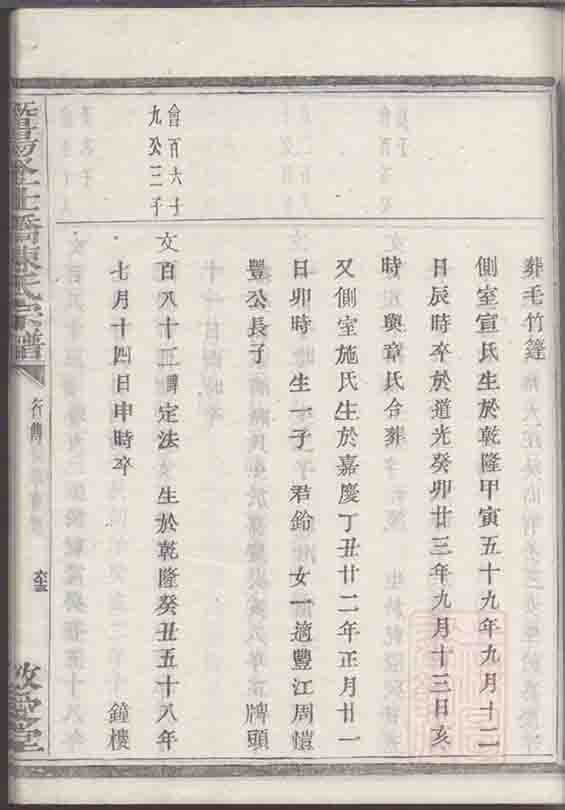 葬毛竹篷
側室宣氏生於乾隆甲寅五十九年九月十二
日辰時卒於道光癸卯廿三年九月十三日亥
時與章氏合葬
又側室施氏生於嘉慶丁丑廿二年正月廿一
日卯時 生一子君鈴女一適豐江周愷
豐公長子 牌頭
會百六十
九公三子
文百八十二諱定法 生於乾隆癸丑五十八年
七月十四日申時卒 鐘樓
橋陳氏宗譜
行傳
敦睦堂